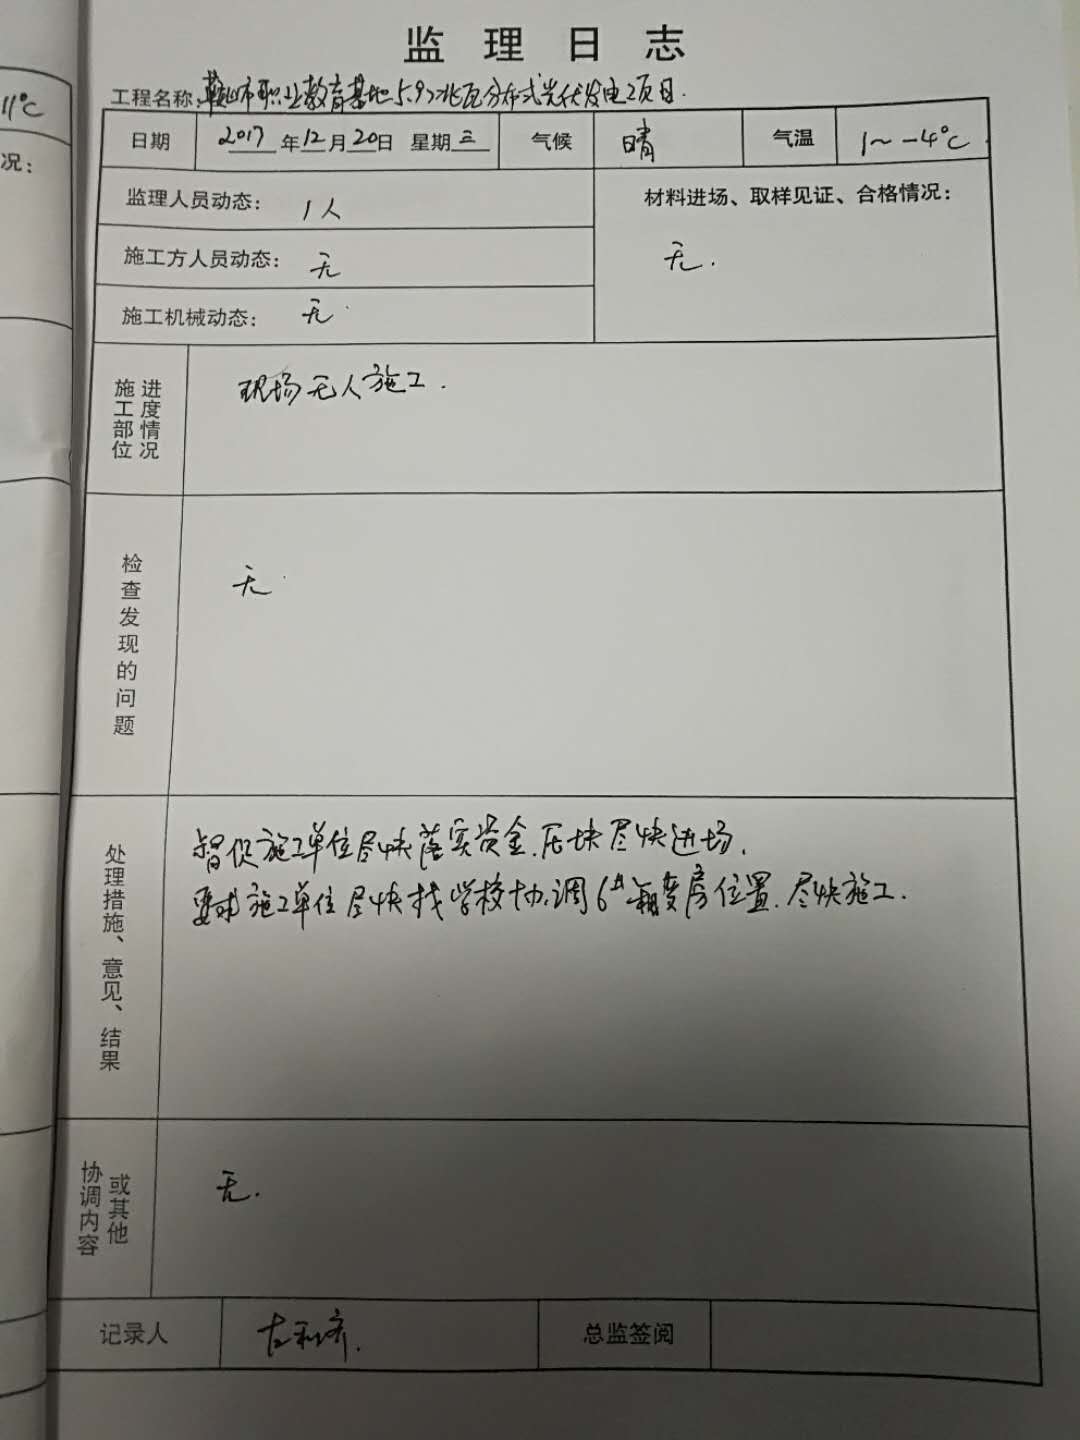 监理日志
工程名称:鞍山市职业教育基地5.92兆瓦分布式光伏发电项目.
日期 2017年12月20日 星期三 气候 晴 气温 1～-4℃
11℃
况：
监理人员动态： 1人
材料进场、取样见证、合格情况：
无.
施工方人员动态： 无
施工机械动态： 无.
施工部位 进度情况
现场无人施工.
检查发现的问题
无.
处理措施、意见、结果
督促施工单位尽快落实资金.压块尽快进场.
要求施工单位尽快找学校协调6#箱变房位置.尽快施工.
协调内容 或其他
无.
记录人 左利齐. 总监签阅